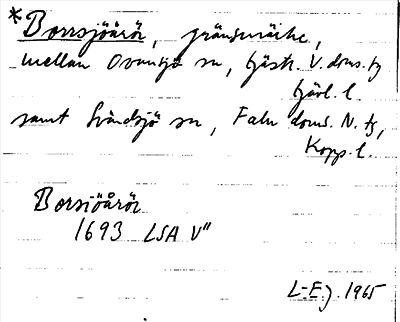 *Borrsjöårör, gränsmärke,
mellan Ovansjö sn, Gästr. V. doms. tg
Gävl. l.
samt Svärdsjö sn, Falu doms. N. tg,
Kopp. l.
Borsiöårör
1693 LSA V"
L-E J. 1965